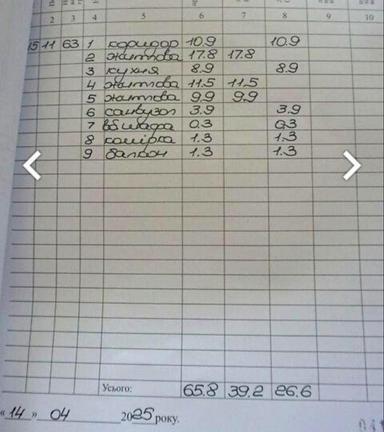 2 3 4 5 6 7 8 9 10
15 11 63 1 коридор 10.9 10.9
2 житлова 17.8 17.8
3 кухня 8.9 8.9
4 житлова 11.5 11.5
5 житлова 9.9 9.9
6 санвузол 3.9 3.9
7 вб шафа 0.3 0.3
8 комірка 1.3 1.3
9 балкон 1.3 1.3
Усього: 65.8 39.2 26.6
«14» 04 2025 року.